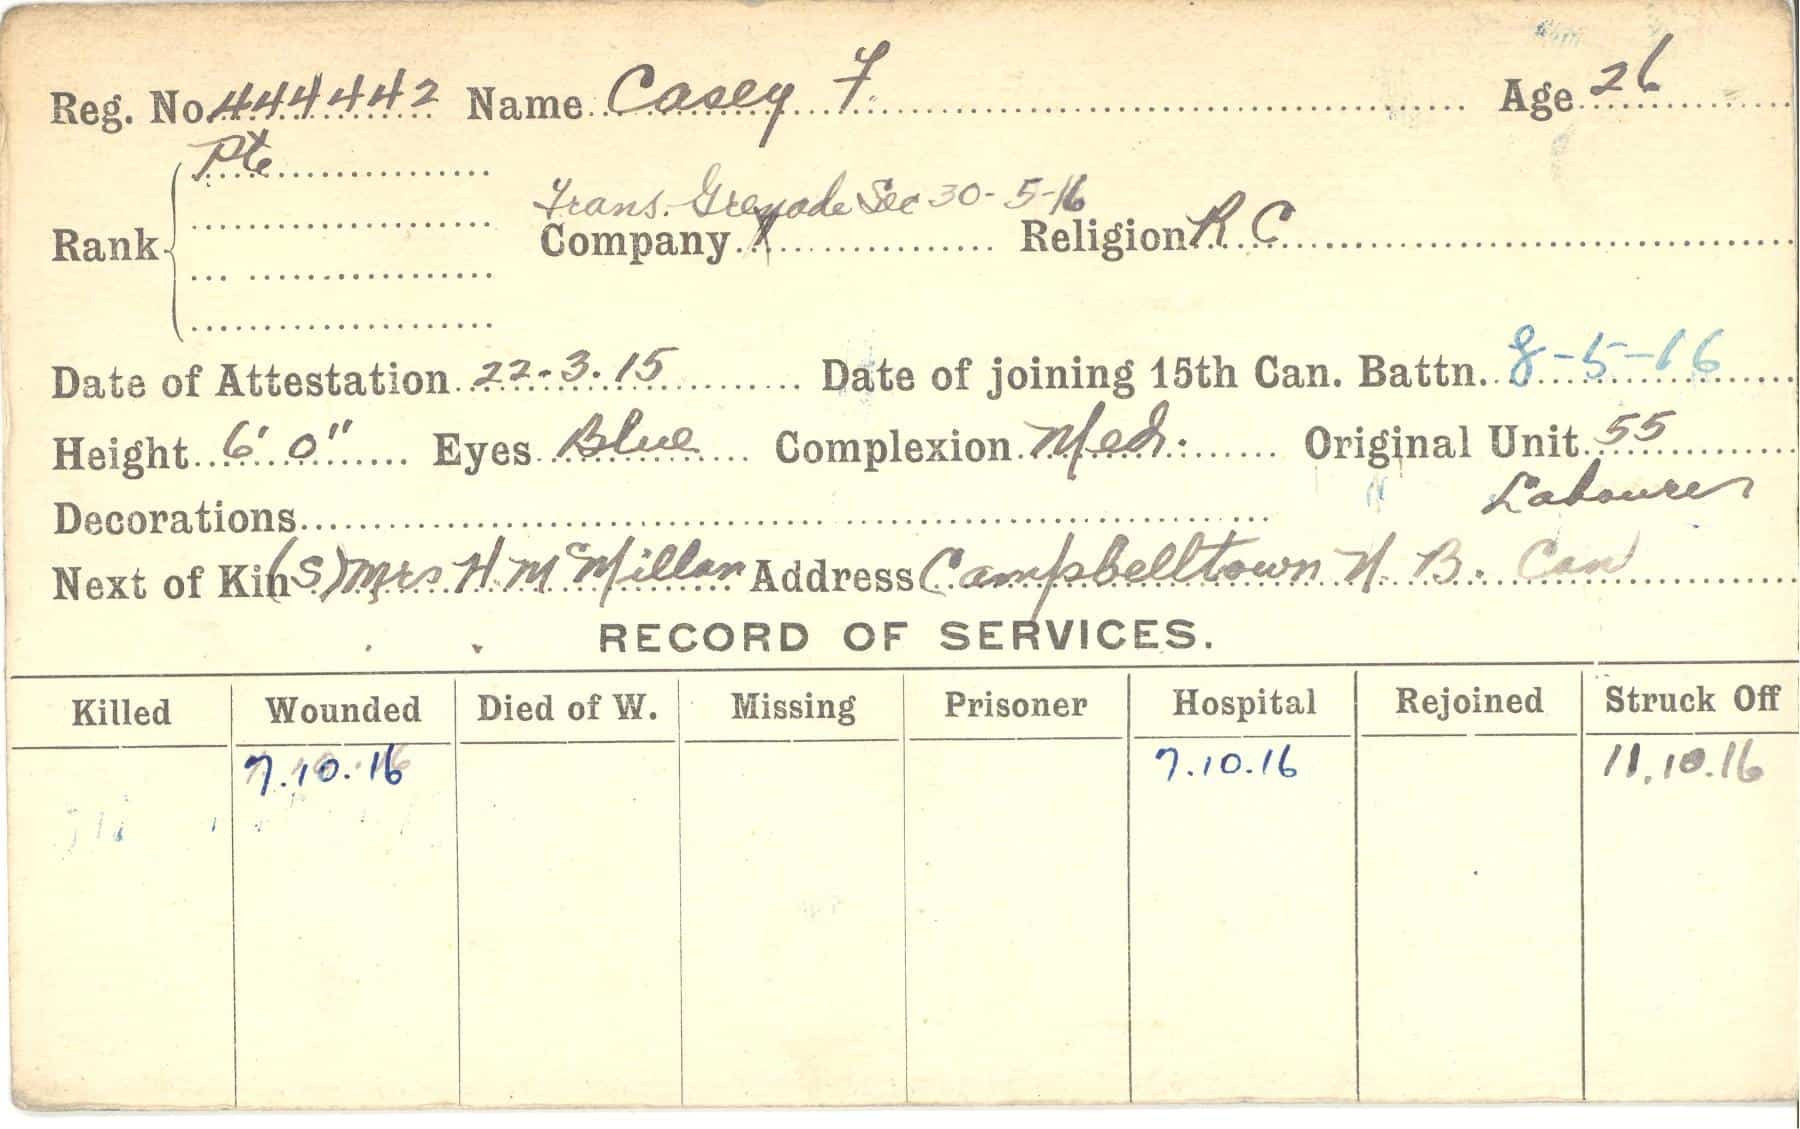 Reg. No. 444442 Name Casey F. Age 26
Pte
Trans. Grenade Sec 30-5-16
Rank Company Religion R C
Date of Attestation 22-3-15 Date of joining 15th Can. Battn. 8-5-16
Height 6' 0" Eyes Blue Complexion Med: Original Unit 55
Labourer
Decorations
Next of Kin (S) Mrs H. McMillan Address Campbelltown N. B. Can
RECORD OF SERVICES.
Killed Wounded Died of W. Missing Prisoner Hospital Rejoined Struck Off
7.10.16 7.10.16 11.10.16